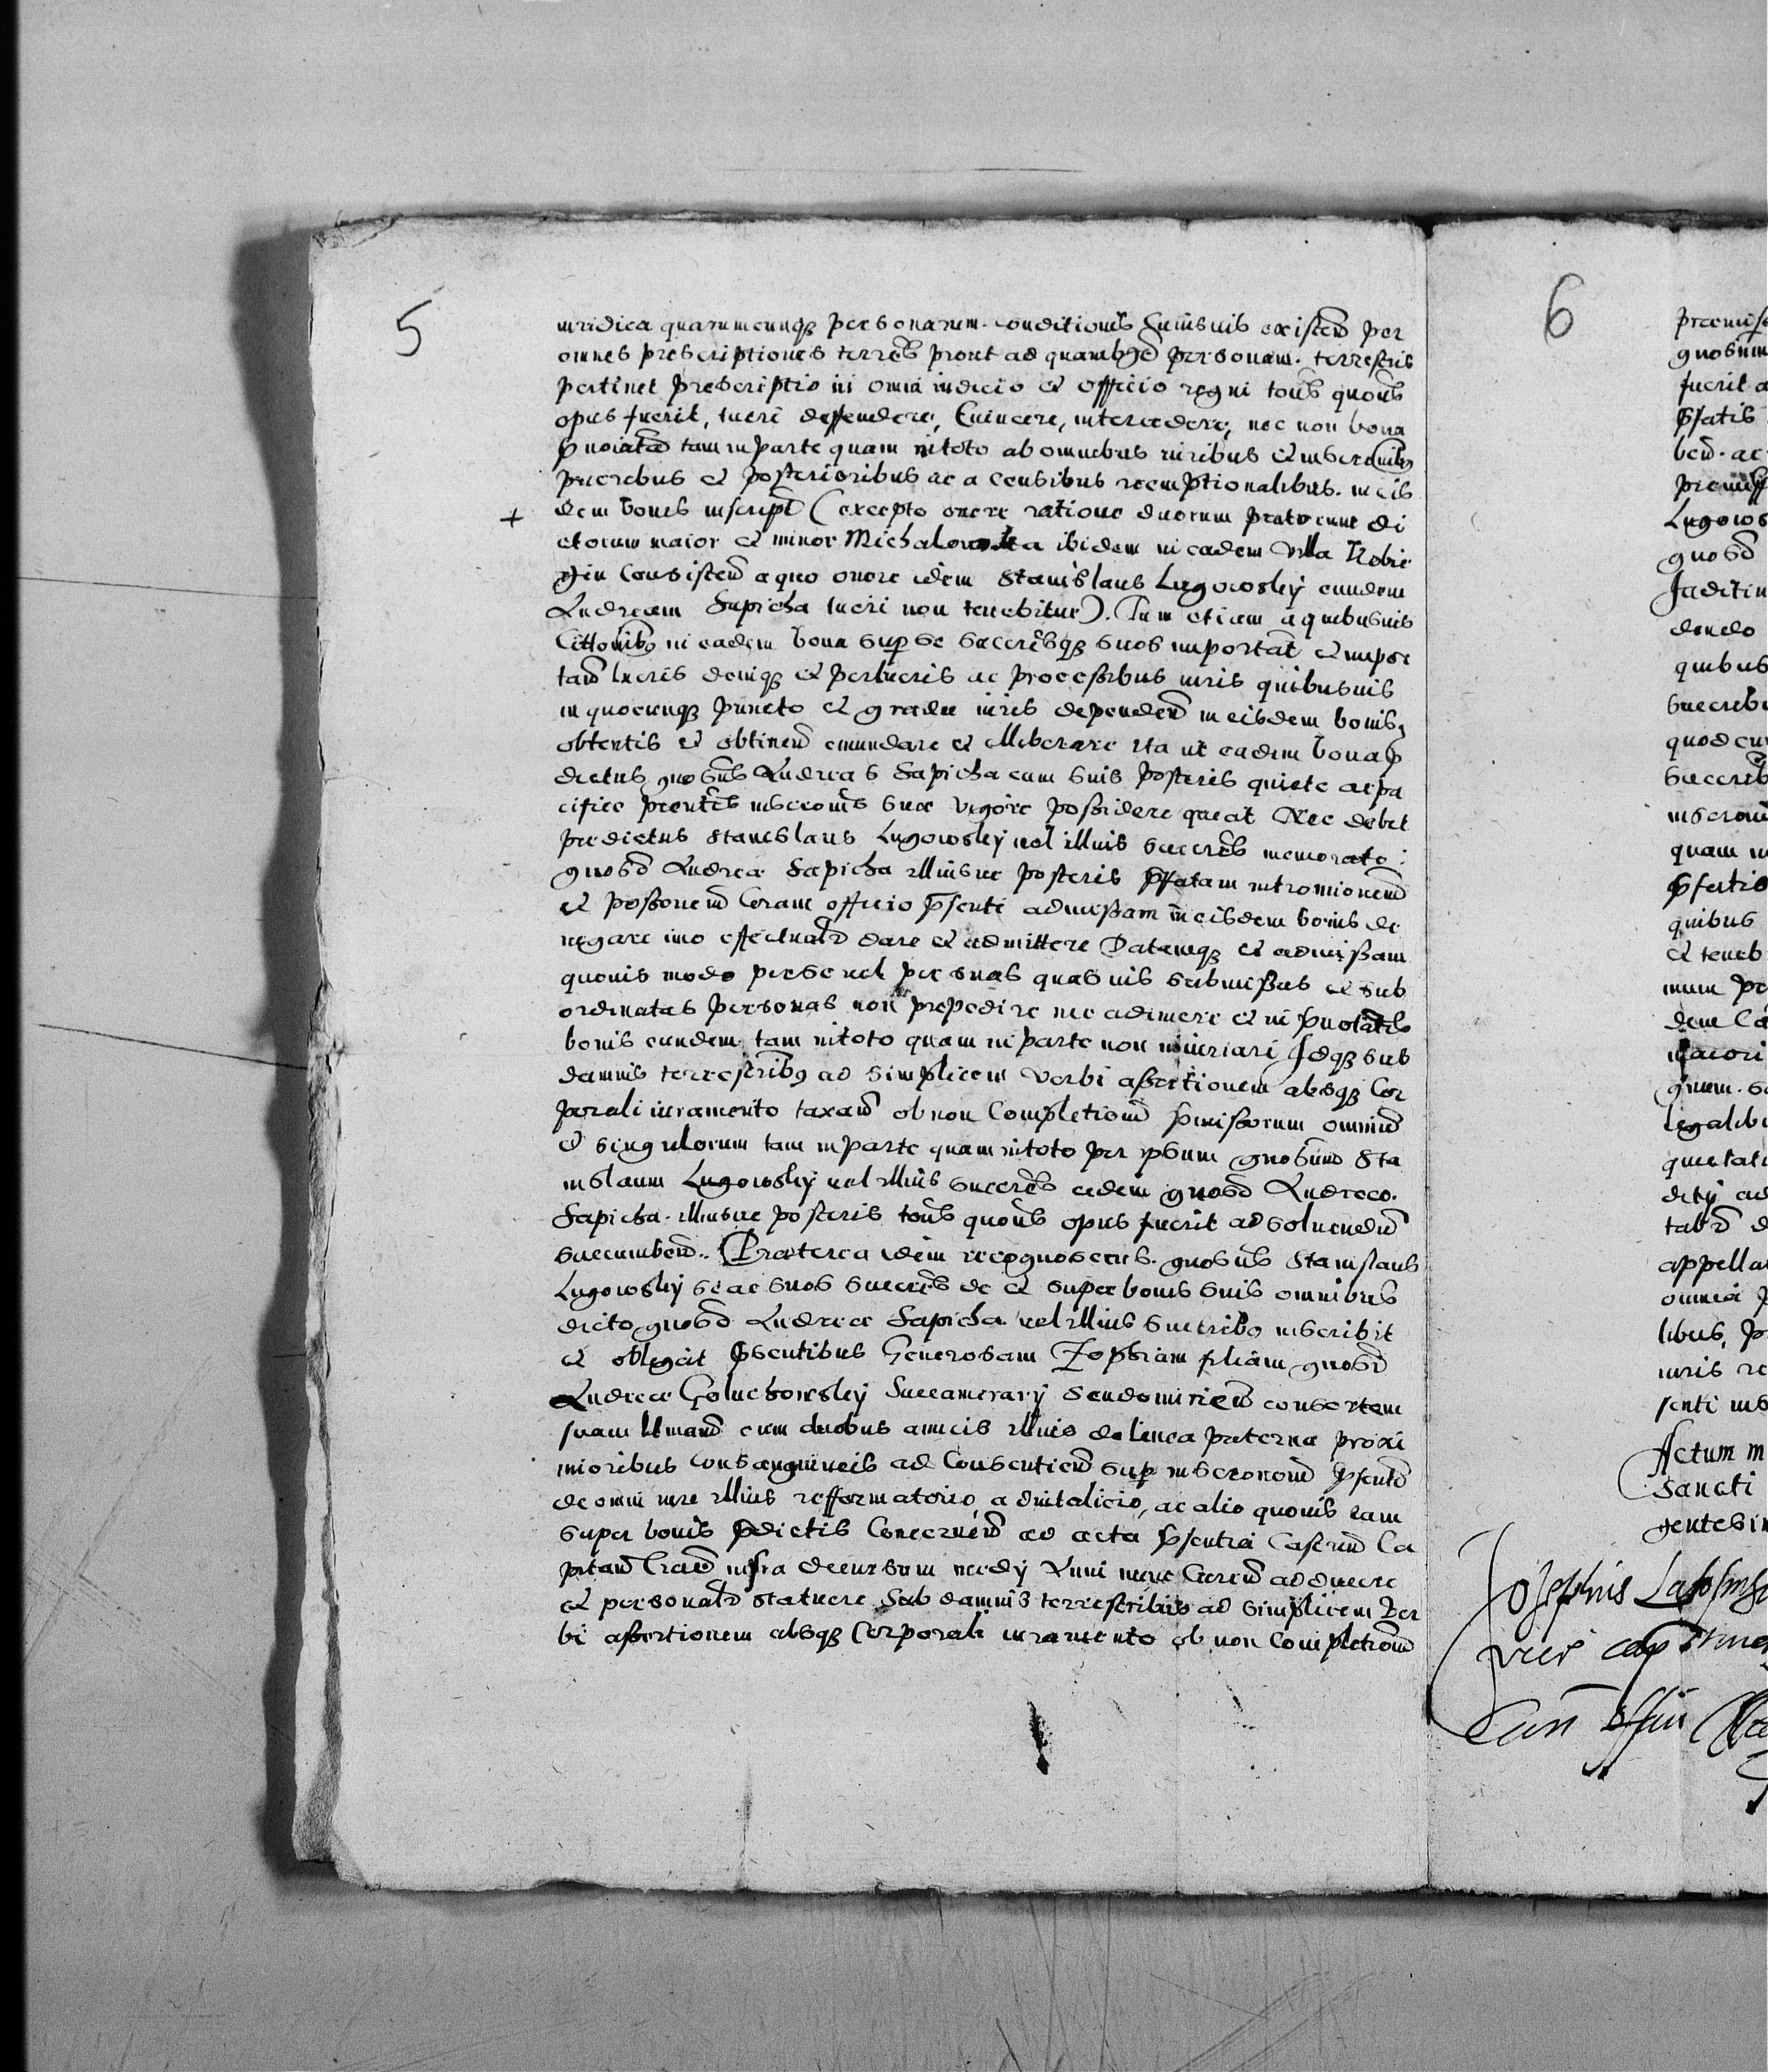 5
iuridica quarumcunqȝ personarum conditionis cuiusuis existen per
omnes prescriptiones terres prout ad quamlibet personam terrestris
pertinet prescriptio in omni iudicio et officio regni totis quotis
opus fuerit, tueri deffendere, Euincere, intercedere, nec non bona
pnoiata tam in parte quam in toto ab omnibus iuribus et inscronibȝ
prioribus et posterioribus ac a censibus reemptionalibus in eis
+ dem bonis inscript (excepto onere ratione duorum pratorum di
ctorum maior et minor Michalowska ibidem in eadem villa
Consisten a quo onere idem Stanislaus Lugowsky eundem
Andream Sapieha tueri non tenebitur). Tum etiam a quibusuis
in eadem bona sup se succeresqȝ suos importat et impor
tan lucris deniqȝ et perlucris ac processibus iuris quibusuis
in quocunqȝ puncto et gradu iuris dependen in eisdem bonis
obtentis et obtinen emundare et elliberare ita ut eadem bona p
dictus gnosus Andreas Sapieha cum suis posteris quiete ac pa
cifice prentis inscronis sue vigore possidere queat Nec debet
predictus Stanislaus Lugowsky vel illius succeres memorato
gnoso Andreae Sapieha illiusue posteris pfatam intromionem
et possonem Coram officio psenti admissam in eisdem bonis de
negare imo effectualr dare et admittere Datamqȝ et admissam
quouis modo per se vel per suas quasuis submissas et sub
ordinatas personas non prepedire nec adimere et in pnotatis
bonis eundem tam in toto quam in parte non iniuriari Idqȝ sub
damnis terrestribȝ ad simplicem verbi assertionem absqȝ Cor
porali iuramento taxan ob non Completionem pmissorum omnium
et singulorum tam in parte quam in toto per ipsum gnosum Sta
nislaum Lugowsky vel illius succeres eidem gnoso Andreae
Sapieha illiusue posteris totis quotis opus fuerit ad soluendum
succumben. Praeterea idem recognoscens gnosus Stanislaus
Lugowsky se ac suos succeres de et super bonis suis omnibus
dicto gnoso Andreae Sapieha vel illius succeribȝ inscribit
et obligat psentibus Generosam Zophiam filiam gnosi
Andreae Goluchowsky Succamerarij Sendomirien consortem
suam cum duobus amicis illius de linea paterna proxi
mioribus consanguineis ad Consentien sup inscronem psentem
de omni iure illius refformatorio, aduitalicio, ac alio quouis eam
super bonis pdictis Concernen ad acta psentia Castren Ca
pitan infra decursum medij Anni nunc adducere
et personalr statuere Sub damnis terrestribus ad simplicem Ver
bi assertionem absqȝ Corporali iuramento ob non Completionem
6
fuerit
pfatis
Lugows
gnoso
quibus
quod cu
quam in
quibus
appella
omnia
iuris re
senti ins
Actum in
Sancti